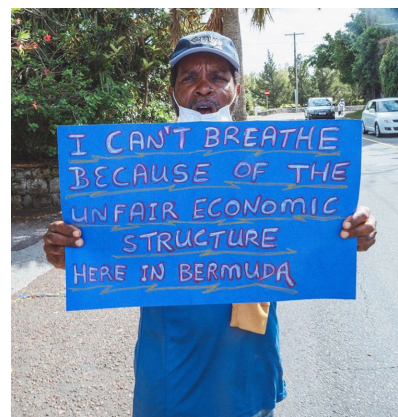 I CAN'T BREATHE
BECAUSE OF THE
UNFAIR ECONOMIC
STRUCTURE
HERE IN BERMUDA